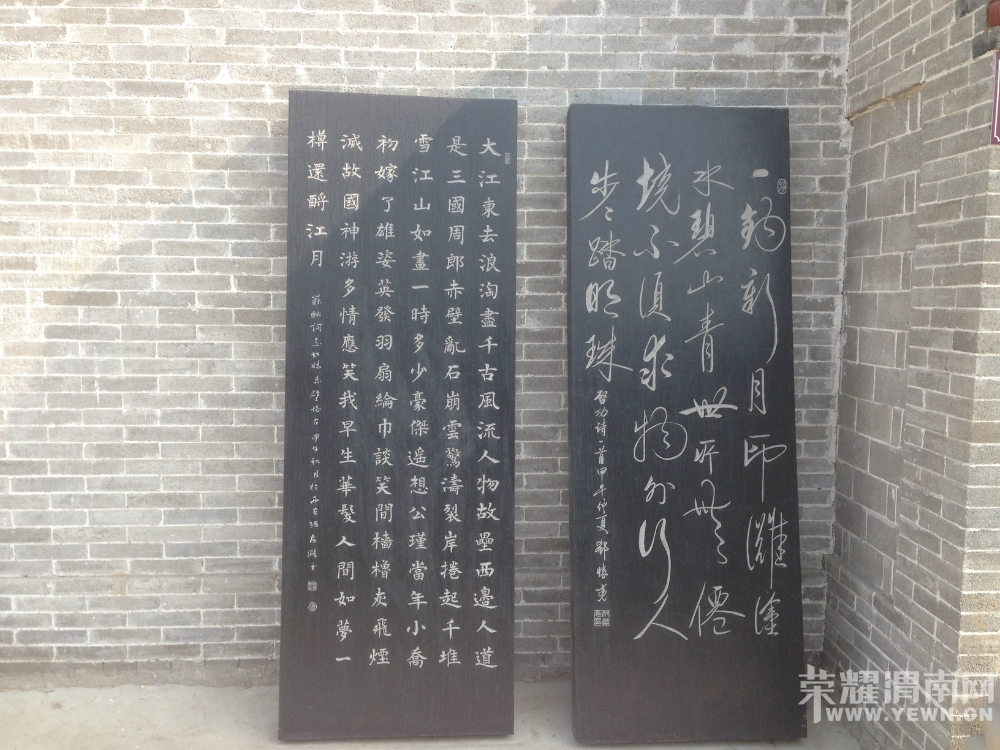 大江東去浪淘盡千古風流人物故壘西邊人道
是三國周郎赤壁亂石崩雲驚濤裂岸捲起千堆
雪江山如畫一時多少豪傑遙想公瑾當年小喬
初嫁了雄姿英發羽扇綸巾談笑間檣櫓灰飛煙
滅故國神游多情應笑我早生華髮人間如夢一
樽還酹江月
蘇軾詞念奴嬌赤壁懷古甲午秋月於西安
一鈎新月印灘塗
水碧山青世所無僊
境不須求物外行人
步步踏明珠
啓功诗一首甲午仲夏
荣耀渭南网
WWW.YEWN.CN